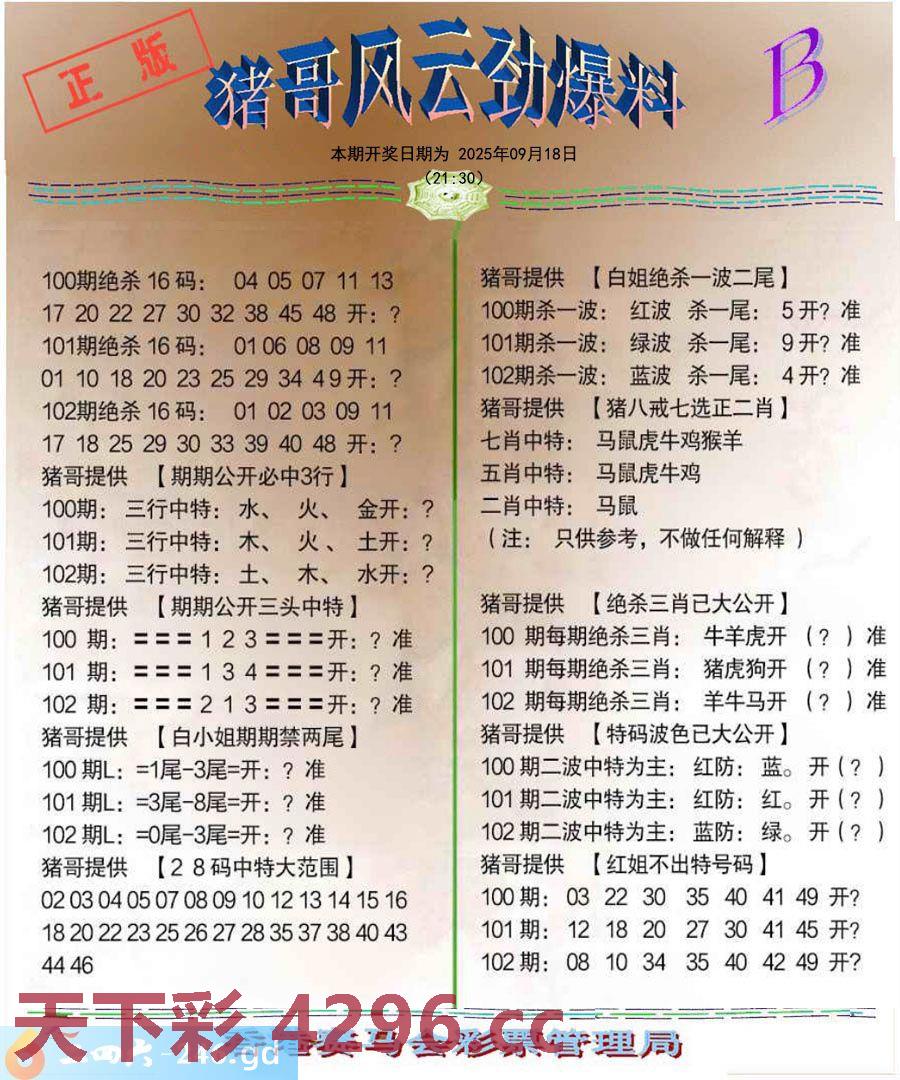 正版
猪哥风云劲爆料
B
本期开奖日期为 2025年09月18日
(21:30)
100期绝杀16码: 04 05 07 11 13
17 20 22 27 30 32 38 45 48 开:?
101期绝杀16码: 01 06 08 09 11
01 10 18 20 23 25 29 34 49开:?
102期绝杀16码: 01 02 03 09 11
17 18 25 29 30 33 39 40 48 开:?
猪哥提供 【期期公开必中3行】
100期: 三行中特: 水、 火、 金开:?
101期: 三行中特: 木、 火、 土开:?
102期: 三行中特: 土、 木、 水开:?
猪哥提供 【期期公开三头中特】
100 期: === 1 2 3 ===开:? 准
101 期: === 1 3 4 ===开:? 准
102 期: === 2 1 3 ===开:? 准
猪哥提供 【白小姐期期禁两尾】
100期L: =1尾-3尾=开:? 准
101期L: =3尾-8尾=开:? 准
102期L: =0尾-3尾=开:? 准
猪哥提供 【28码中特大范围】
02 03 04 05 07 08 09 10 12 13 14 15 16
18 20 22 23 25 26 27 28 35 37 38 40 43
44 46
猪哥提供 【白姐绝杀一波二尾】
100期杀一波: 红波 杀一尾: 5开? 准
101期杀一波: 绿波 杀一尾: 9开? 准
102期杀一波: 蓝波 杀一尾: 4开? 准
猪哥提供 【猪八戒七选正二肖】
七肖中特: 马鼠虎牛鸡猴羊
五肖中特: 马鼠虎牛鸡
二肖中特: 马鼠
(注: 只供参考,不做任何解释 )
猪哥提供 【绝杀三肖已大公开】
100 期每期绝杀三肖: 牛羊虎开 (?)准
101 期每期绝杀三肖: 猪虎狗开 (?)准
102 期每期绝杀三肖: 羊牛马开 (?)准
猪哥提供 【特码波色已大公开】
100期二波中特为主: 红防: 蓝。开(?)
101期二波中特为主: 红防: 红。开(?)
102期二波中特为主: 蓝防: 绿。开(?)
猪哥提供 【红姐不出特号码】
100期: 03 22 30 35 40 41 49 开?
101期: 12 18 20 27 30 41 45 开?
102期: 08 10 34 35 40 42 49 开?
天下彩 4296.cc
马会彩票管理局